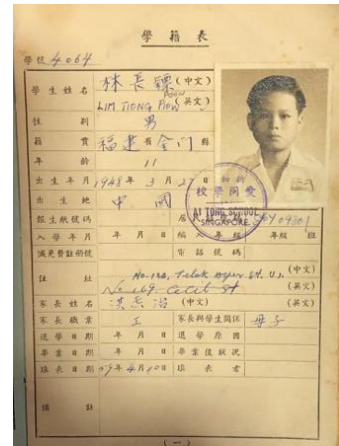 學籍表
學號 4064
學生姓名 林長 (中文)
LIM TIONG PIOW (英文)
性別 男
籍貫 福建省金门縣
年齡 11
出生年月 1948年3月27日
出生地 中國
報生紙號碼
愛同學校
AI TONG SCHOOL
SINGAPORE
入學年月 年 月 日 編入年級 年級 班
減免費註冊號 電話號碼
住址 No. Telok Ayer St. (中文)
No. 169. Cecil St (英文)
家長姓名 洪 治 (中文) (英文)
家長職業 工 家長與學生關係 母子
退學日期 年 月 日 退學原因
畢業日期 年 月 日 畢業後狀況
填表日期 59年4月10日 填表者
備註
(一)